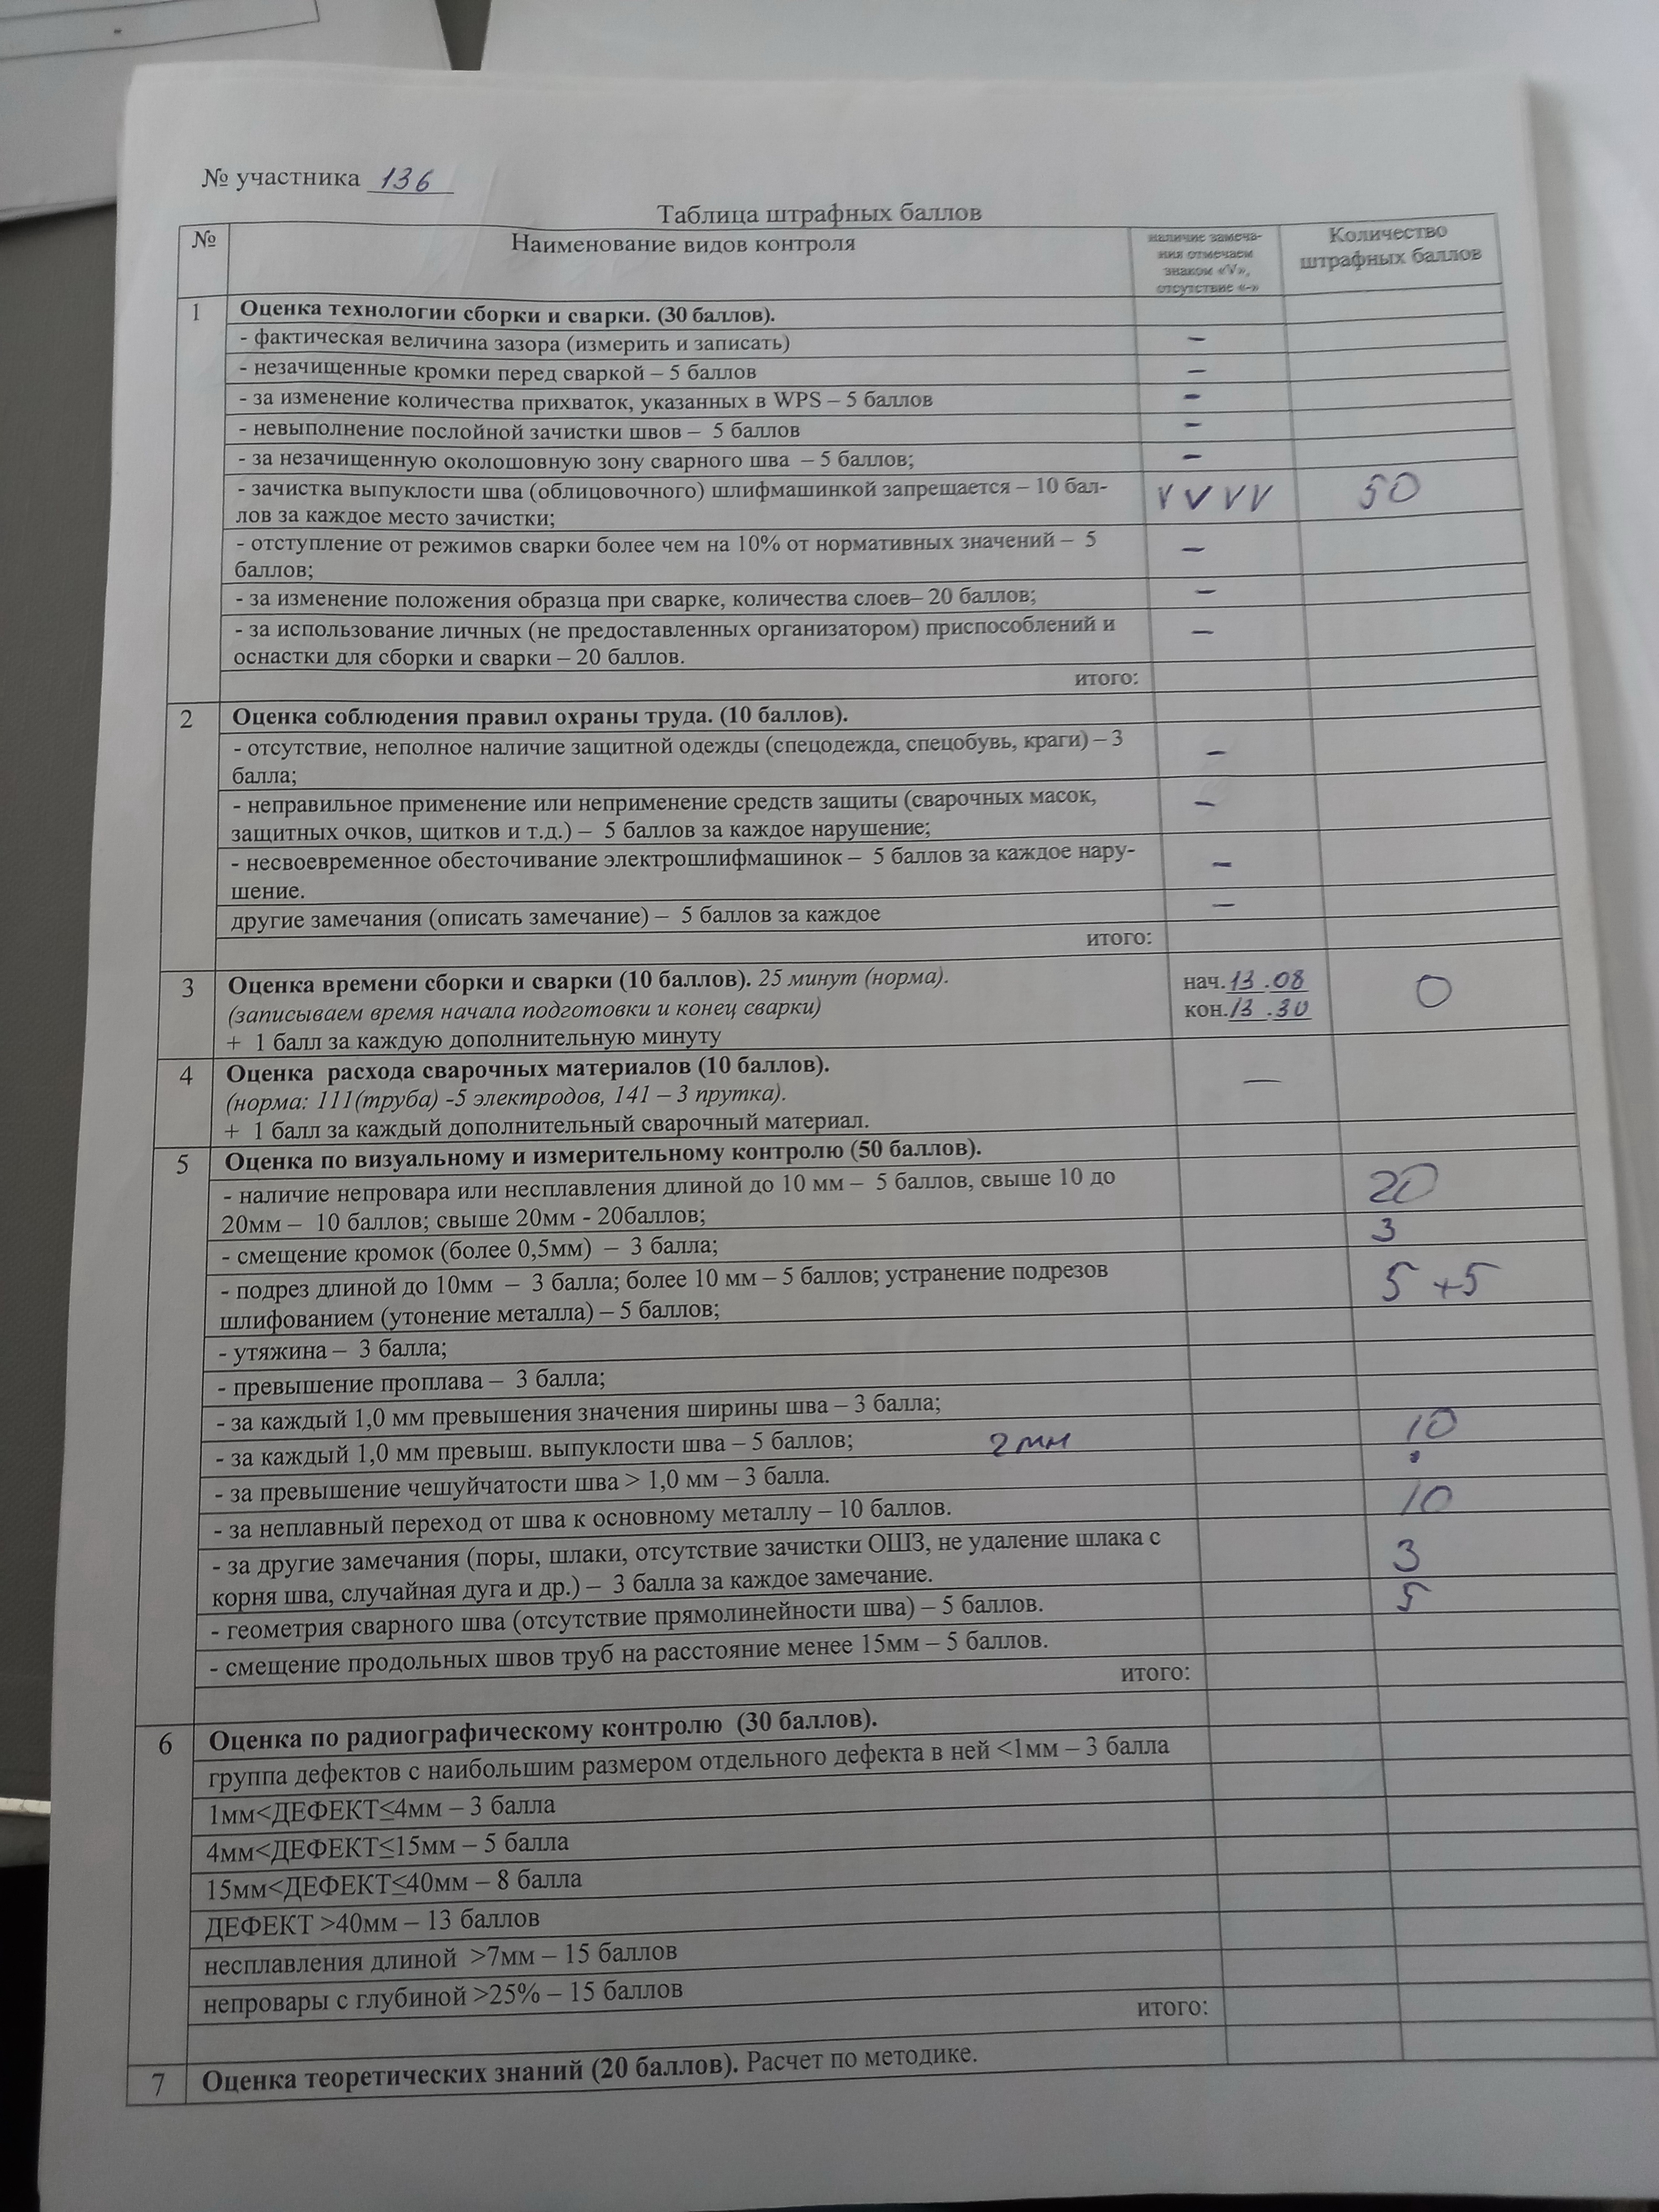 № участника 136
Таблица штрафных баллов
№
Наименование видов контроля
наличие замеча-
ния отмечаем
знаком «V»,
отсутствие «-»
Количество
штрафных баллов
1
Оценка технологии сборки и сварки. (30 баллов).
- фактическая величина зазора (измерить и записать) –
- незачищенные кромки перед сваркой – 5 баллов –
- за изменение количества прихваток, указанных в WPS – 5 баллов –
- невыполнение послойной зачистки швов – 5 баллов –
- за незачищенную околошовную зону сварного шва – 5 баллов; –
- зачистка выпуклости шва (облицовочного) шлифмашинкой запрещается – 10 бал-
лов за каждое место зачистки;
V V V V 50
- отступление от режимов сварки более чем на 10% от нормативных значений – 5
баллов;
–
- за изменение положения образца при сварке, количества слоев– 20 баллов; –
- за использование личных (не предоставленных организатором) приспособлений и
оснастки для сборки и сварки – 20 баллов.
–
итого:
2
Оценка соблюдения правил охраны труда. (10 баллов).
- отсутствие, неполное наличие защитной одежды (спецодежда, спецобувь, краги) – 3
балла;
–
- неправильное применение или неприменение средств защиты (сварочных масок,
защитных очков, щитков и т.д.) – 5 баллов за каждое нарушение;
–
- несвоевременное обесточивание электрошлифмашинок – 5 баллов за каждое нару-
шение.
–
другие замечания (описать замечание) – 5 баллов за каждое –
итого:
3
Оценка времени сборки и сварки (10 баллов). 25 минут (норма).
(записываем время начала подготовки и конец сварки)
+ 1 балл за каждую дополнительную минуту
нач. 13 . 08
кон. 13 . 30
0
4
Оценка расхода сварочных материалов (10 баллов).
(норма: 111(труба) -5 электродов, 141 – 3 прутка).
+ 1 балл за каждый дополнительный сварочный материал.
—
5
Оценка по визуальному и измерительному контролю (50 баллов).
- наличие непровара или несплавления длиной до 10 мм – 5 баллов, свыше 10 до
20мм – 10 баллов; свыше 20мм - 20баллов;
20
- смещение кромок (более 0,5мм) – 3 балла; 3
- подрез длиной до 10мм – 3 балла; более 10 мм – 5 баллов; устранение подрезов
шлифованием (утонение металла) – 5 баллов;
5 +5
- утяжина – 3 балла;
- превышение проплава – 3 балла;
- за каждый 1,0 мм превышения значения ширины шва – 3 балла;
- за каждый 1,0 мм превыш. выпуклости шва – 5 баллов; 2 мм 10
- за превышение чешуйчатости шва > 1,0 мм – 3 балла.
- за неплавный переход от шва к основному металлу – 10 баллов. 10
- за другие замечания (поры, шлаки, отсутствие зачистки ОШЗ, не удаление шлака с
корня шва, случайная дуга и др.) – 3 балла за каждое замечание.
3
- геометрия сварного шва (отсутствие прямолинейности шва) – 5 баллов. 5
- смещение продольных швов труб на расстояние менее 15мм – 5 баллов.
итого:
6
Оценка по радиографическому контролю (30 баллов).
группа дефектов с наибольшим размером отдельного дефекта в ней <1мм – 3 балла
1мм<ДЕФЕКТ≤4мм – 3 балла
4мм<ДЕФЕКТ≤15мм – 5 балла
15мм<ДЕФЕКТ≤40мм – 8 балла
ДЕФЕКТ >40мм – 13 баллов
несплавления длиной >7мм – 15 баллов
непровары с глубиной >25% – 15 баллов
итого:
7
Оценка теоретических знаний (20 баллов). Расчет по методике.